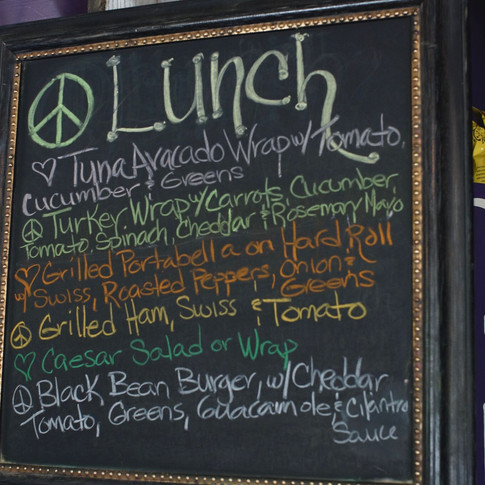 Lunch
Tuna Avacado Wrap w/ Tomato,
Cucumber & Greens
Turkey Wrap w/ Carrots, Cucumber,
Tomato, Spinach, Cheddar & Rosemary Mayo
Grilled Portabella on Hard Roll
w/ Swiss, Roasted Peppers, Onion &
Greens
Grilled Ham, Swiss & Tomato
Caesar Salad or Wrap
Black Bean Burger, w/ Cheddar
Tomato, Greens, Guacamole & Cilantro
Sauce